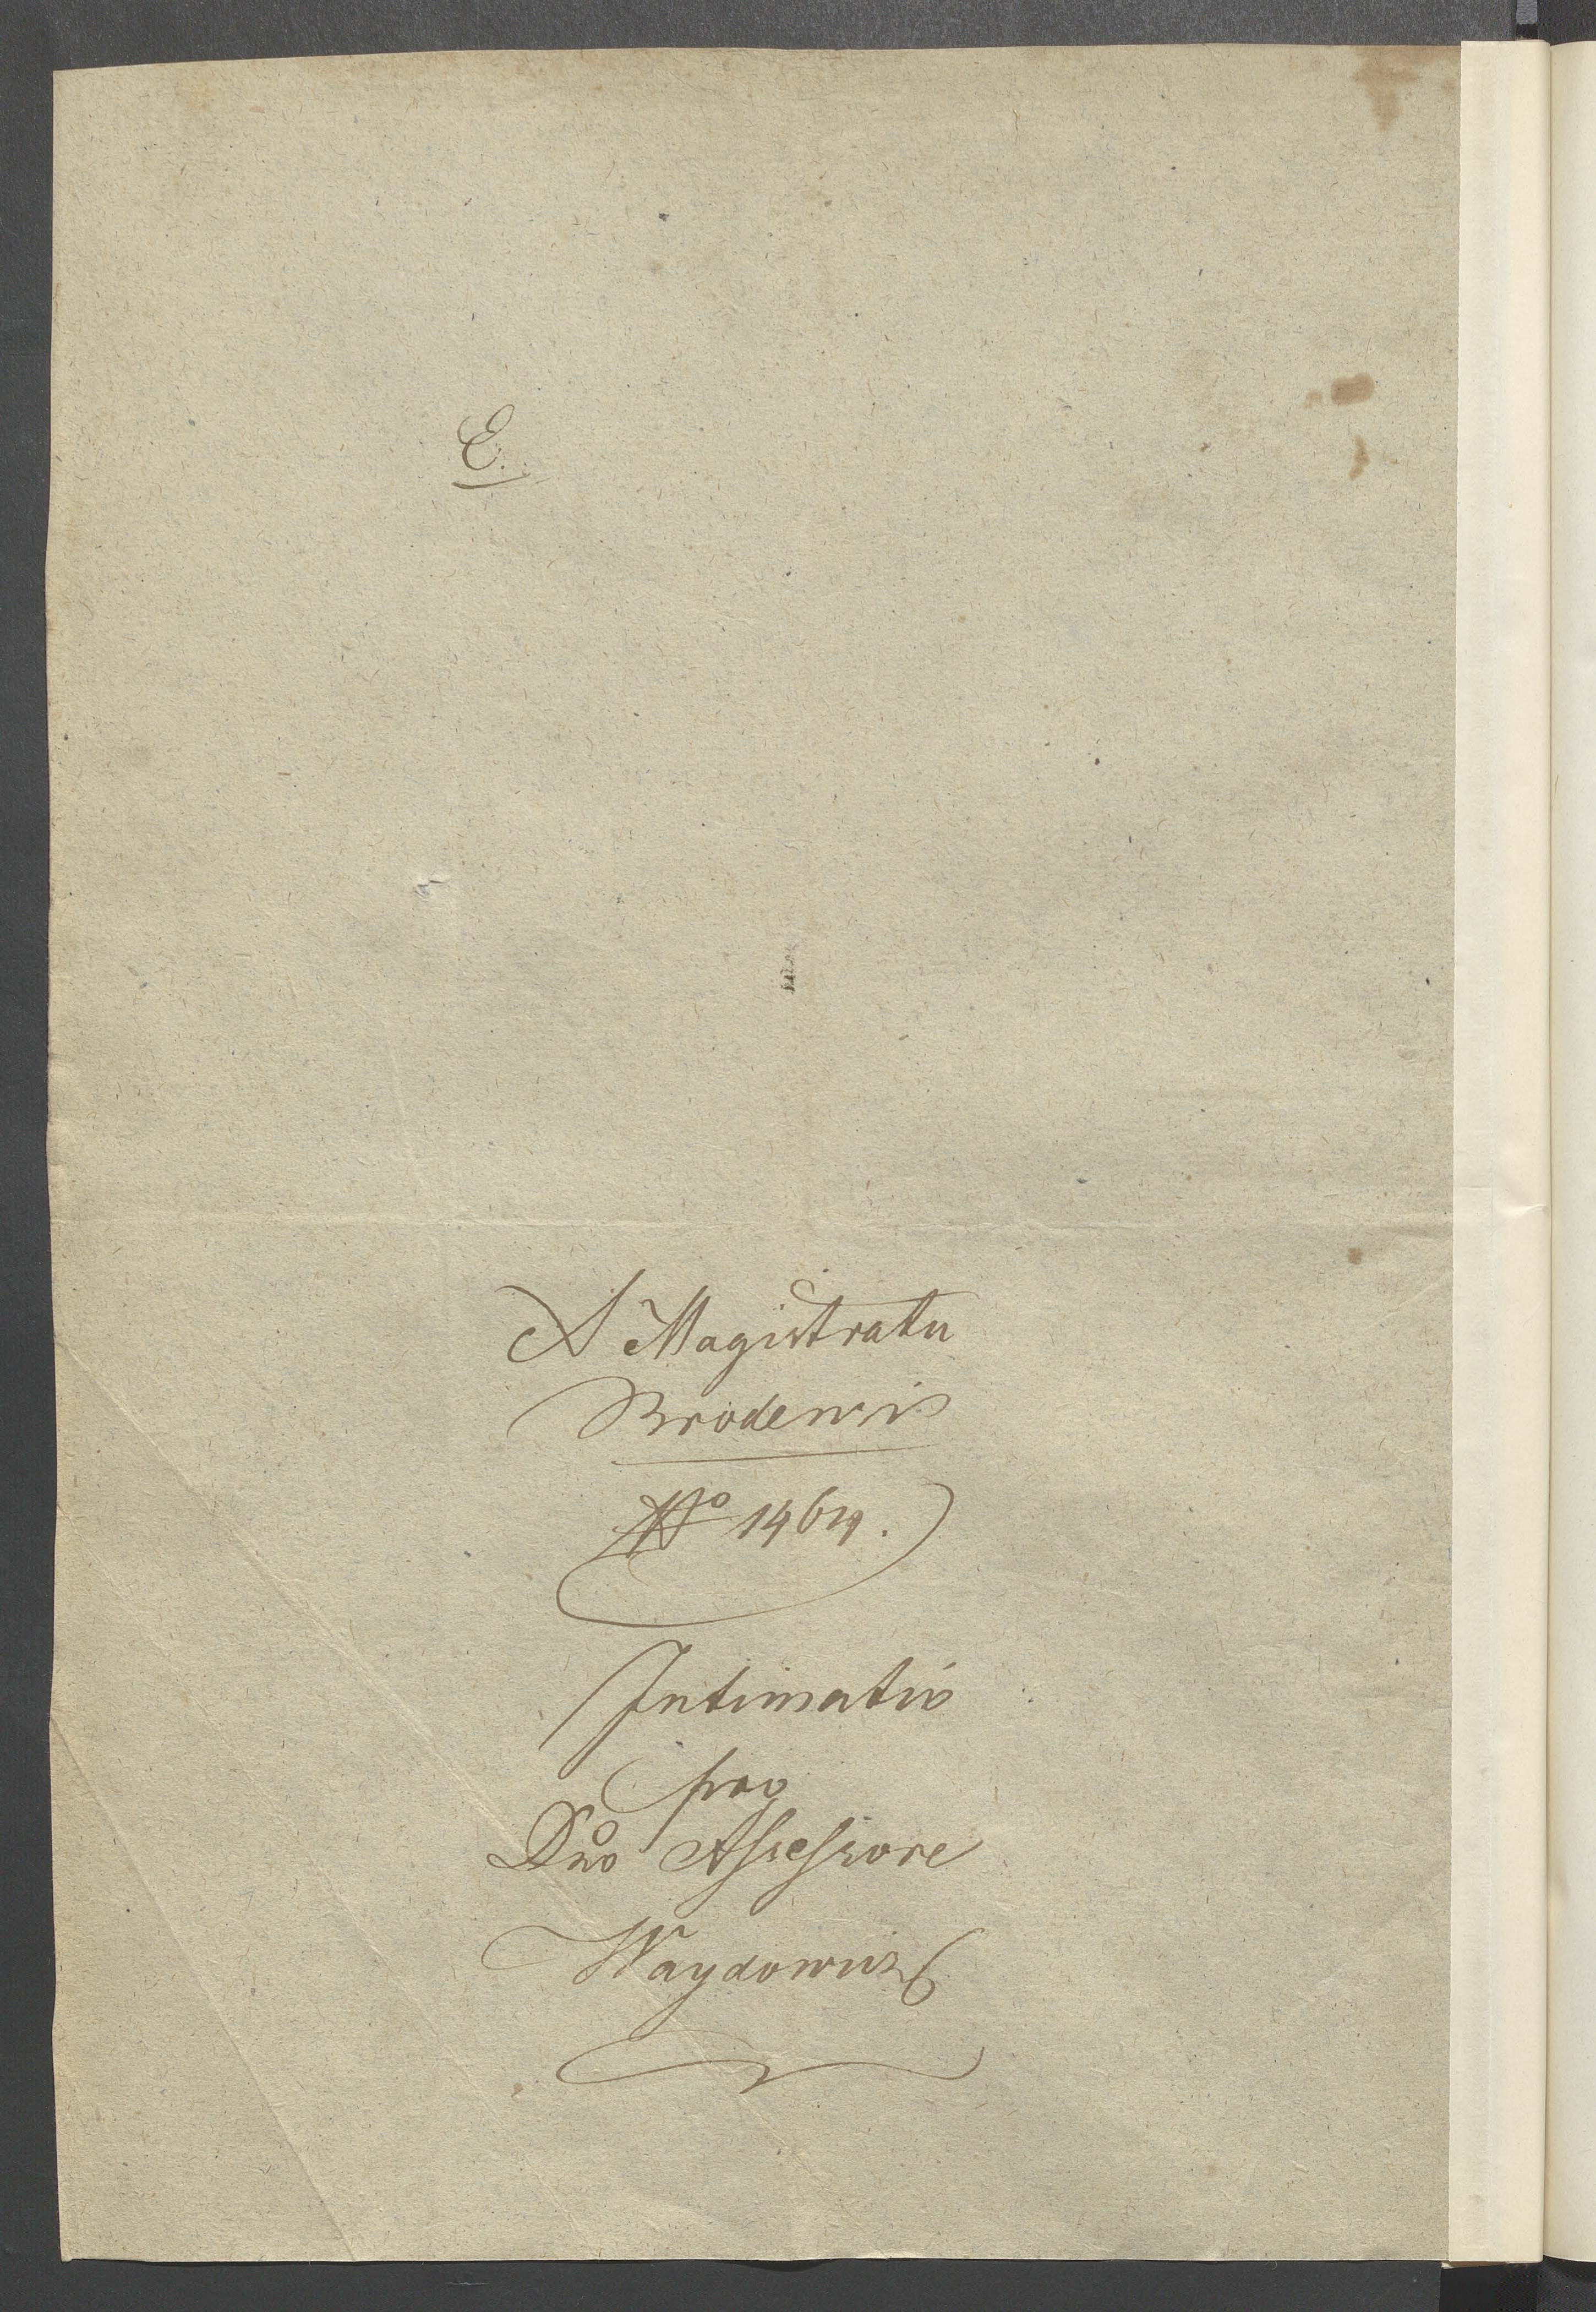 E.
A Magistratu
Brodensis
No 1464.
Intimatio
pro
Dno Assessore
Waydowicz